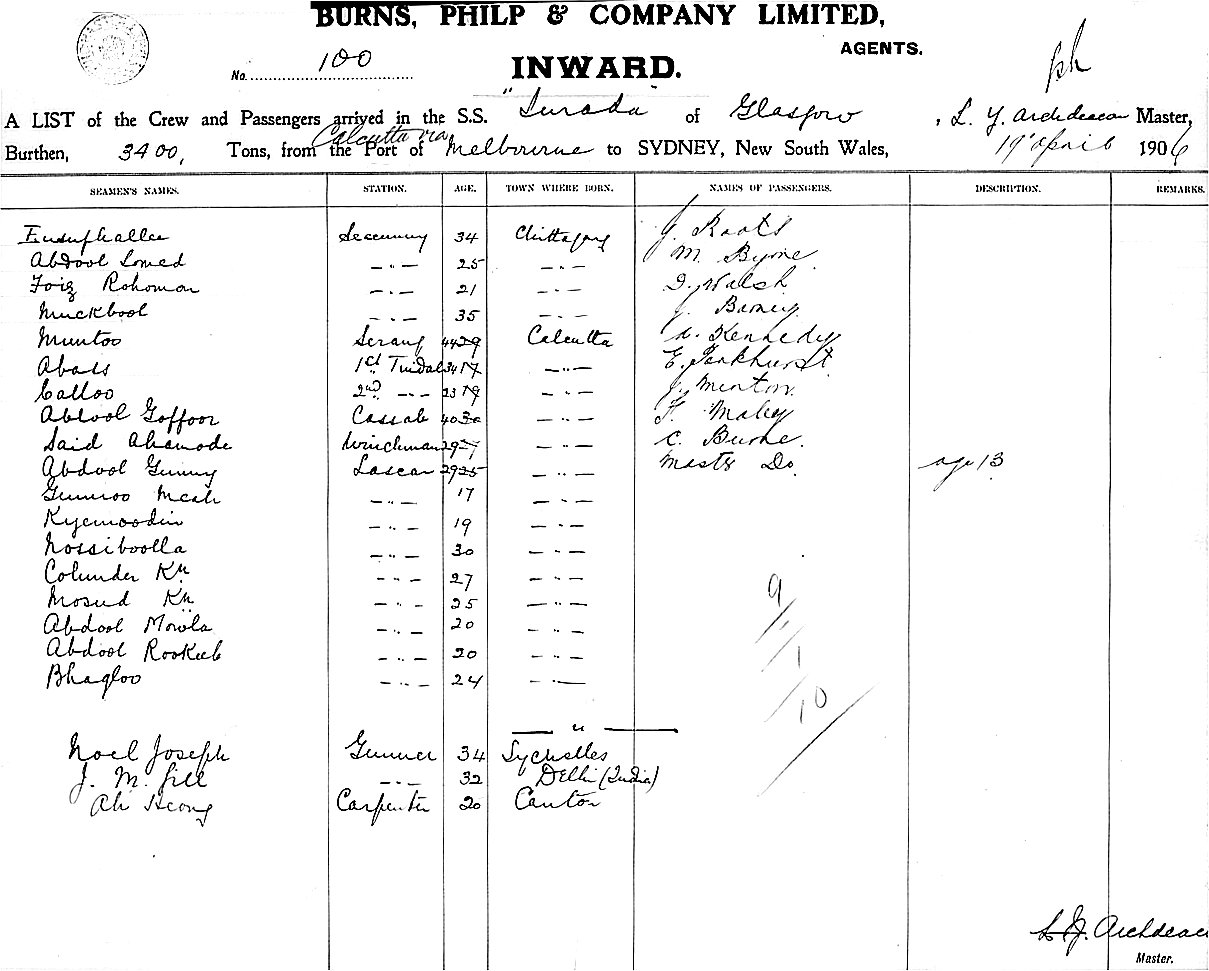 BURNS, PHILP & COMPANY LIMITED,
AGENTS.
No. 100
INWARD.
A LIST of the Crew and Passengers arrived in the S.S. "Surada" of Glasgow, L. Y. Archdeacon Master,
Burthen, 3400, Tons, from the Port of Calcutta via Melbourne to SYDNEY, New South Wales, 19 April 1906
SEAMEN'S NAMES. STATION. AGE. TOWN WHERE BORN. NAMES OF PASSENGERS. DESCRIPTION. REMARKS.
34 Chittagong J. Roots
Abdool Somed — " — 25 — " — M. Byrne
Foiz Rohoman — " — 21 — " — D. Walsh
Muckbool — " — 35 — " — J. Barney
Muntoo Serang 44 29 Calcutta Kennedy
Abass 1st Tindal 34 17 — " — E. Pankhurst
Calloo 2nd — " — 23 19 — " — J. Minton
Abdool Goffoor Cassab 40 30 — " — F. Maley
Said Ahamode Winchman 29 27 — " — C. Burne.
Abdool Gunny Lascar 29 25 — " — Master Do. age 13
Gunnoo Meah — " — 17 — " —
Kyemoodin — " — 19 — " —
Nossiboolla — " — 30 — " —
Colunder Kn — " — 27 — " —
Mosud Kn — " — 25 — " — 9
Abdool Mowla — " — 20 — " — 1
Abdool Rookub — " — 20 — " — 1
Bhagloo — " — 24 — " — 10
— " —
Noel Joseph Gunner 34 Sychelles
J. M. Gill — " — 32 Delhi (India)
Ah Heong Carpenter 20 Canton
L. Y. Archdeacon
Master.